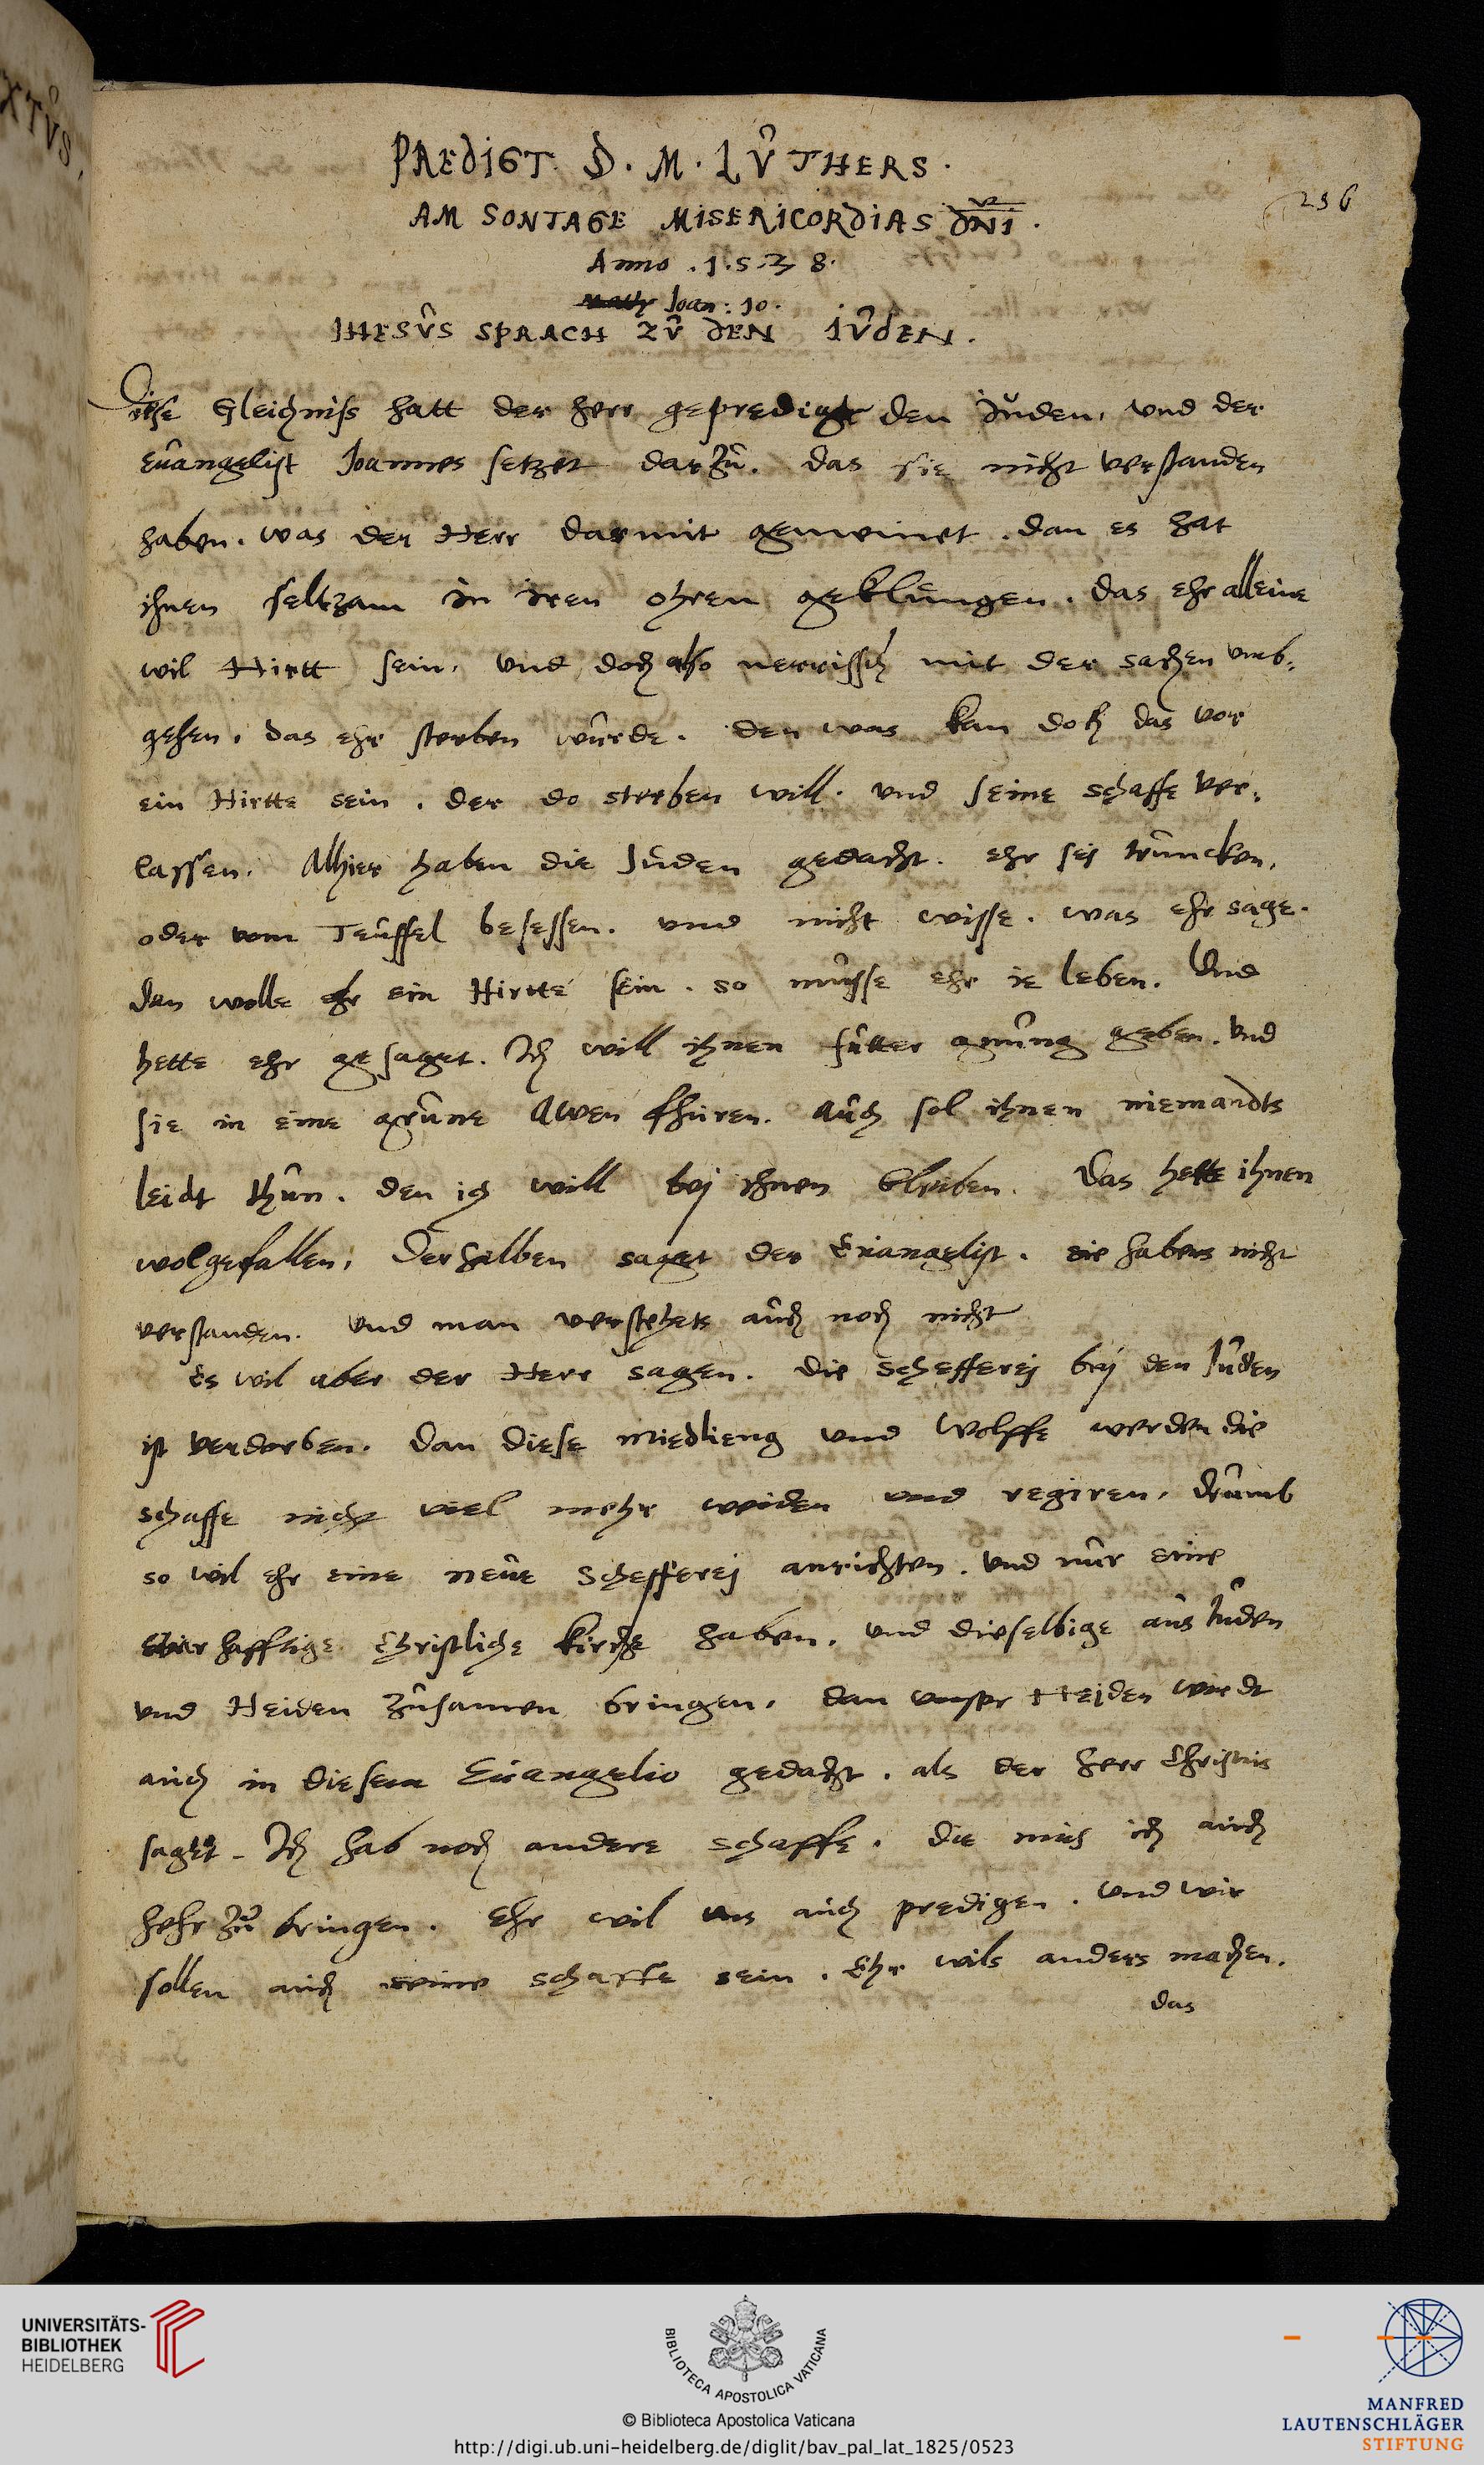 XTVS.
PREDIGT. D. M. LŮTHERS.
256
AM SONTAGE MISERICORDIAS DNI.
Anno . 1.5.3 8.
Math Joan: 10.
IHESŮS SPRACH ZŮ DEN IŮDEN.
Diese Gleichniss hatt der herr geprediget den Jůden, und der
Eůangelist Joannes setzet darzů. das sie nicht verstanden
haben. was der Herr darmit gemeinet. dan es hat
ihnen seltzam in iren ohren geklůngen. das ehr alleine
wil Hirtt sein, und doch also nerrissch mit der sachen umb,
gehen, das ehr sterben wůrde. den was kan doch das vor
ein Hirtte sein. der do sterben will. und seine schaffe ver,
lassen. Alhier haben die Jůden gedacht. ehr sej trůncken,
oder vom Teůffel besessen. und nicht wisse. was ehr sage.
den wolle ehr ein Hirtte sein. so můsse ehr ie leben. Und
hette ehr gesaget. Ich will ihnen fůtter gnůng geben. Und
sie in eine grůne Awen fhůren. Aůch sol ihnen niemandts
leidt thůn. den ich will bej ihnen bleiben. Das hette ihnen
wolgefallen, Derhalben saget der Eůangelist. sie habens nicht
verstanden. Und man verstehets aůch noch nicht
Es wil aber der Herr sagen. die schefferej bej den Jůden
ist verdorben. dan diese Miedlieng und Wolffe werden die
schaffe nicht viel mehr weiden und regiren, drůmb
so wil ehr eine neůe schefferej anrichten. und nůr eine
warhafftige Christliche kirche haben. und dieselbige aůs Jůden
und Heiden zůsamen bringen. dan unser Hejden wirdt
aůch in diesem Eůangelio gedacht. als der herr Christůs
saget. Ich hab noch andere schaffe. die můs ich aůch
hehr zů bringen. Ehr wil uns aůch predigen. Und wir
sollen aůch seine schaffe sein. Ehr wils anders machen.
das
UNIVERSITÄTS-
BIBLIOTHEK
HEIDELBERG
BIBLIOTECA APOSTOLICA VATICANA
© Biblioteca Apostolica Vaticana
http://digi.ub.uni-heidelberg.de/diglit/bav_pal_lat_1825/0523
MANFRED
LAUTENSCHLÄGER
STIFTUNG